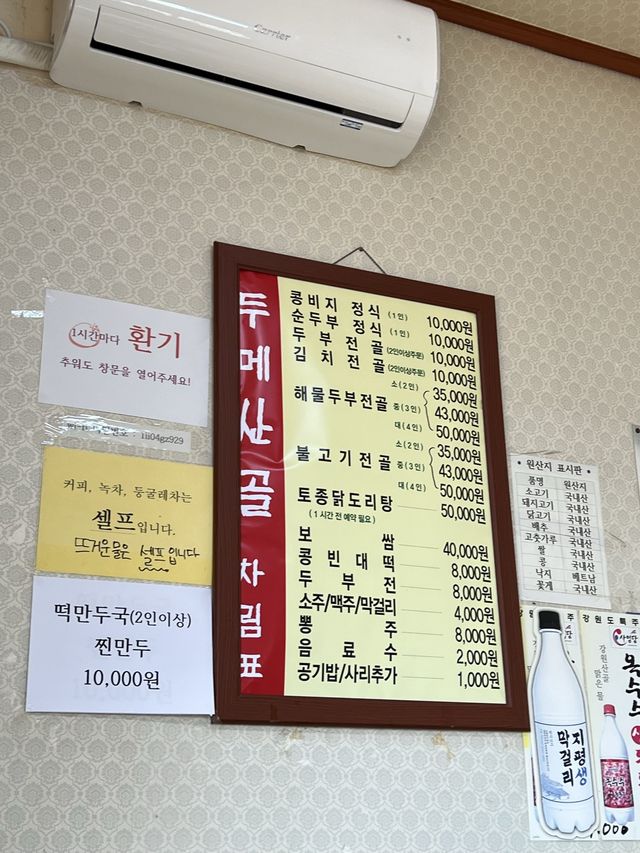 Carrier
1시간마다 환기
추워도 창문을 열어주세요!
1li04gz929
커피, 녹차, 둥굴레차는
셀프입니다.
뜨거운물은 셀프입니다
떡만두국(2인이상)
찐만두
10,000원
두메산골 차림표
콩비지 정식 (1인) 10,000원
순두부 정식 (1인) 10,000원
두부 전골 (2인이상주문) 10,000원
김치 전골 (2인이상주문) 10,000원
해물두부전골 소(2인) 35,000원
중(3인) 43,000원
대(4인) 50,000원
불고기전골 소(2인) 35,000원
중(3인) 43,000원
대(4인) 50,000원
토종닭도리탕 50,000원
(1시간 전 예약 필요)
보쌈 40,000원
콩빈대떡 8,000원
두부전 8,000원
소주/맥주/막걸리 4,000원
뽕주 8,000원
음료수 2,000원
공기밥/사리추가 1,000원
원산지 표시판
품명 원산지
소고기 국내산
돼지고기 국내산
닭고기 국내산
배추 국내산
고춧가루 국내산
쌀 국내산
콩 국내산
낙지 베트남
꽃게 국내산
지평생
막걸리
강원도특주
강원산골
맑은물
옥수수
,000